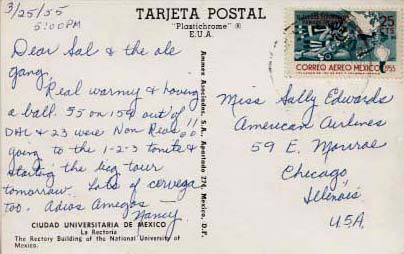 3/25/55
5:00PM
TARJETA POSTAL
"Plastichrome" ®
E.U.A.
Dear Sal & the ole
gang,
Real warmy & having
a ball. 55 on 159 out of
DAL & 23 were Non Revs!!
going to the 1-2-3 tonite &
starting the big tour
tomorraw. Lots of cervega
too. Adios Amegos –
Nancy
CIUDAD UNIVERSITARIA DE MEXICO
La Rectoria
The Rectory Building of the National University of
Mexico.
Ammex Asociados, S.A., Apartado 274, Mexico, D.F.
25
CTS
CORREO AEREO MEXICO 1955
Miss Sally Edwards
American Airlines
59 E. Monroe
Chicago
Illinois
U.S.A.